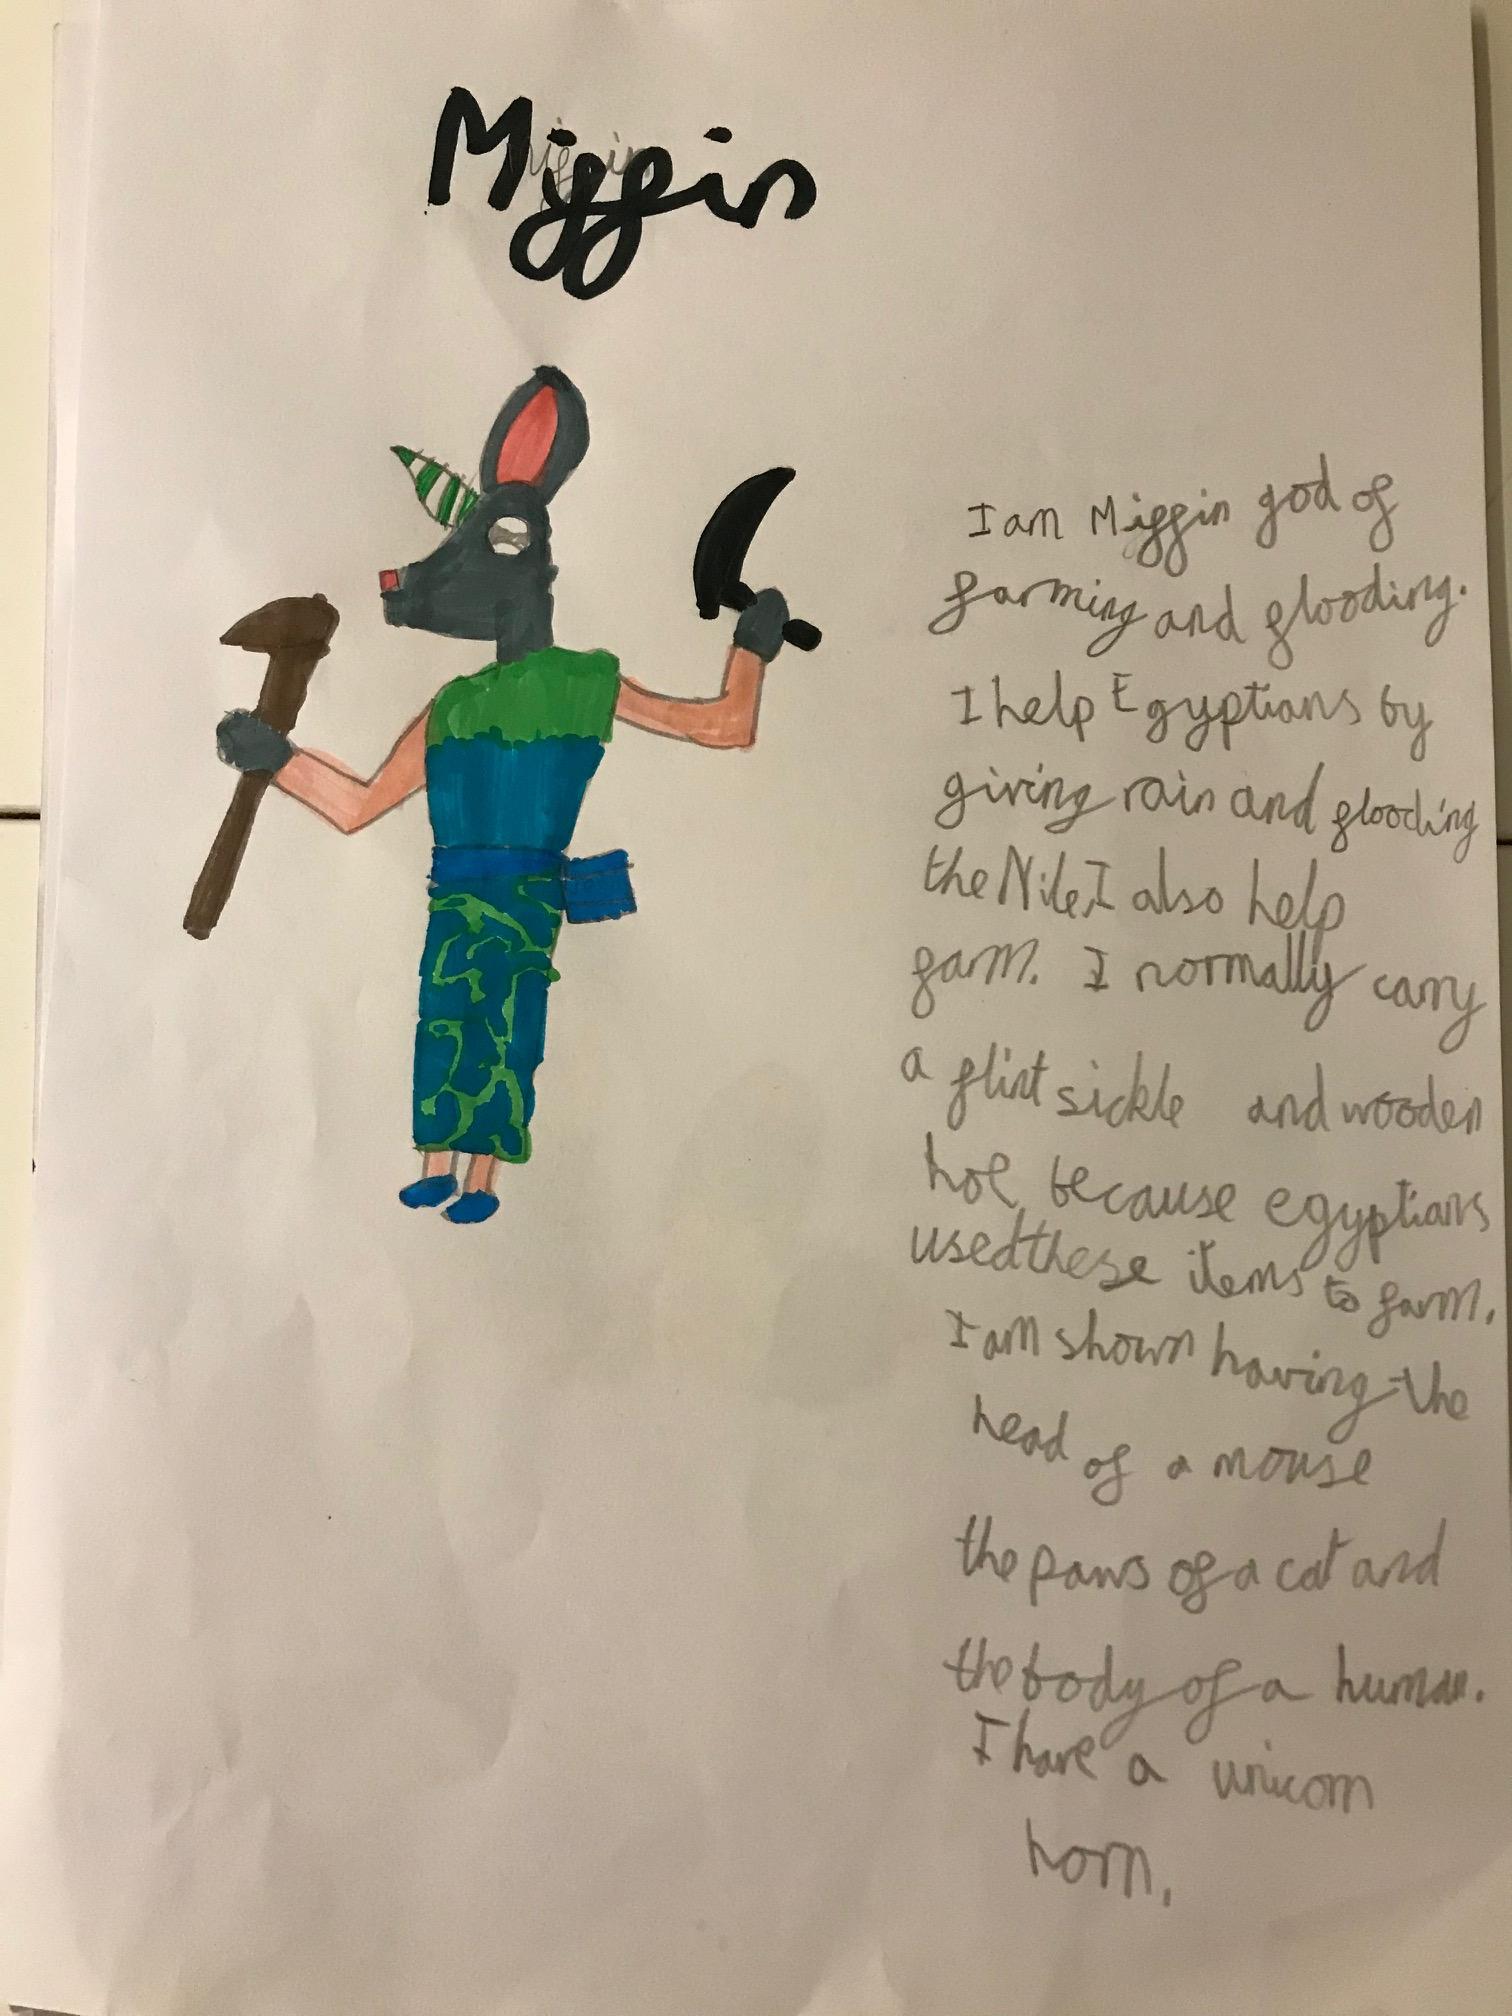 Miggin
I am Miggin god of
farming and flooding.
I help Egyptians by
giving rain and flooding
the Nile, I also help
farm. I normally carry
a flint sickle and wooden
hoe because egyptians
used these items to farm.
I am shown having the
head of a mouse
the paws of a cat and
the body of a human.
I have a unicorn
horn.